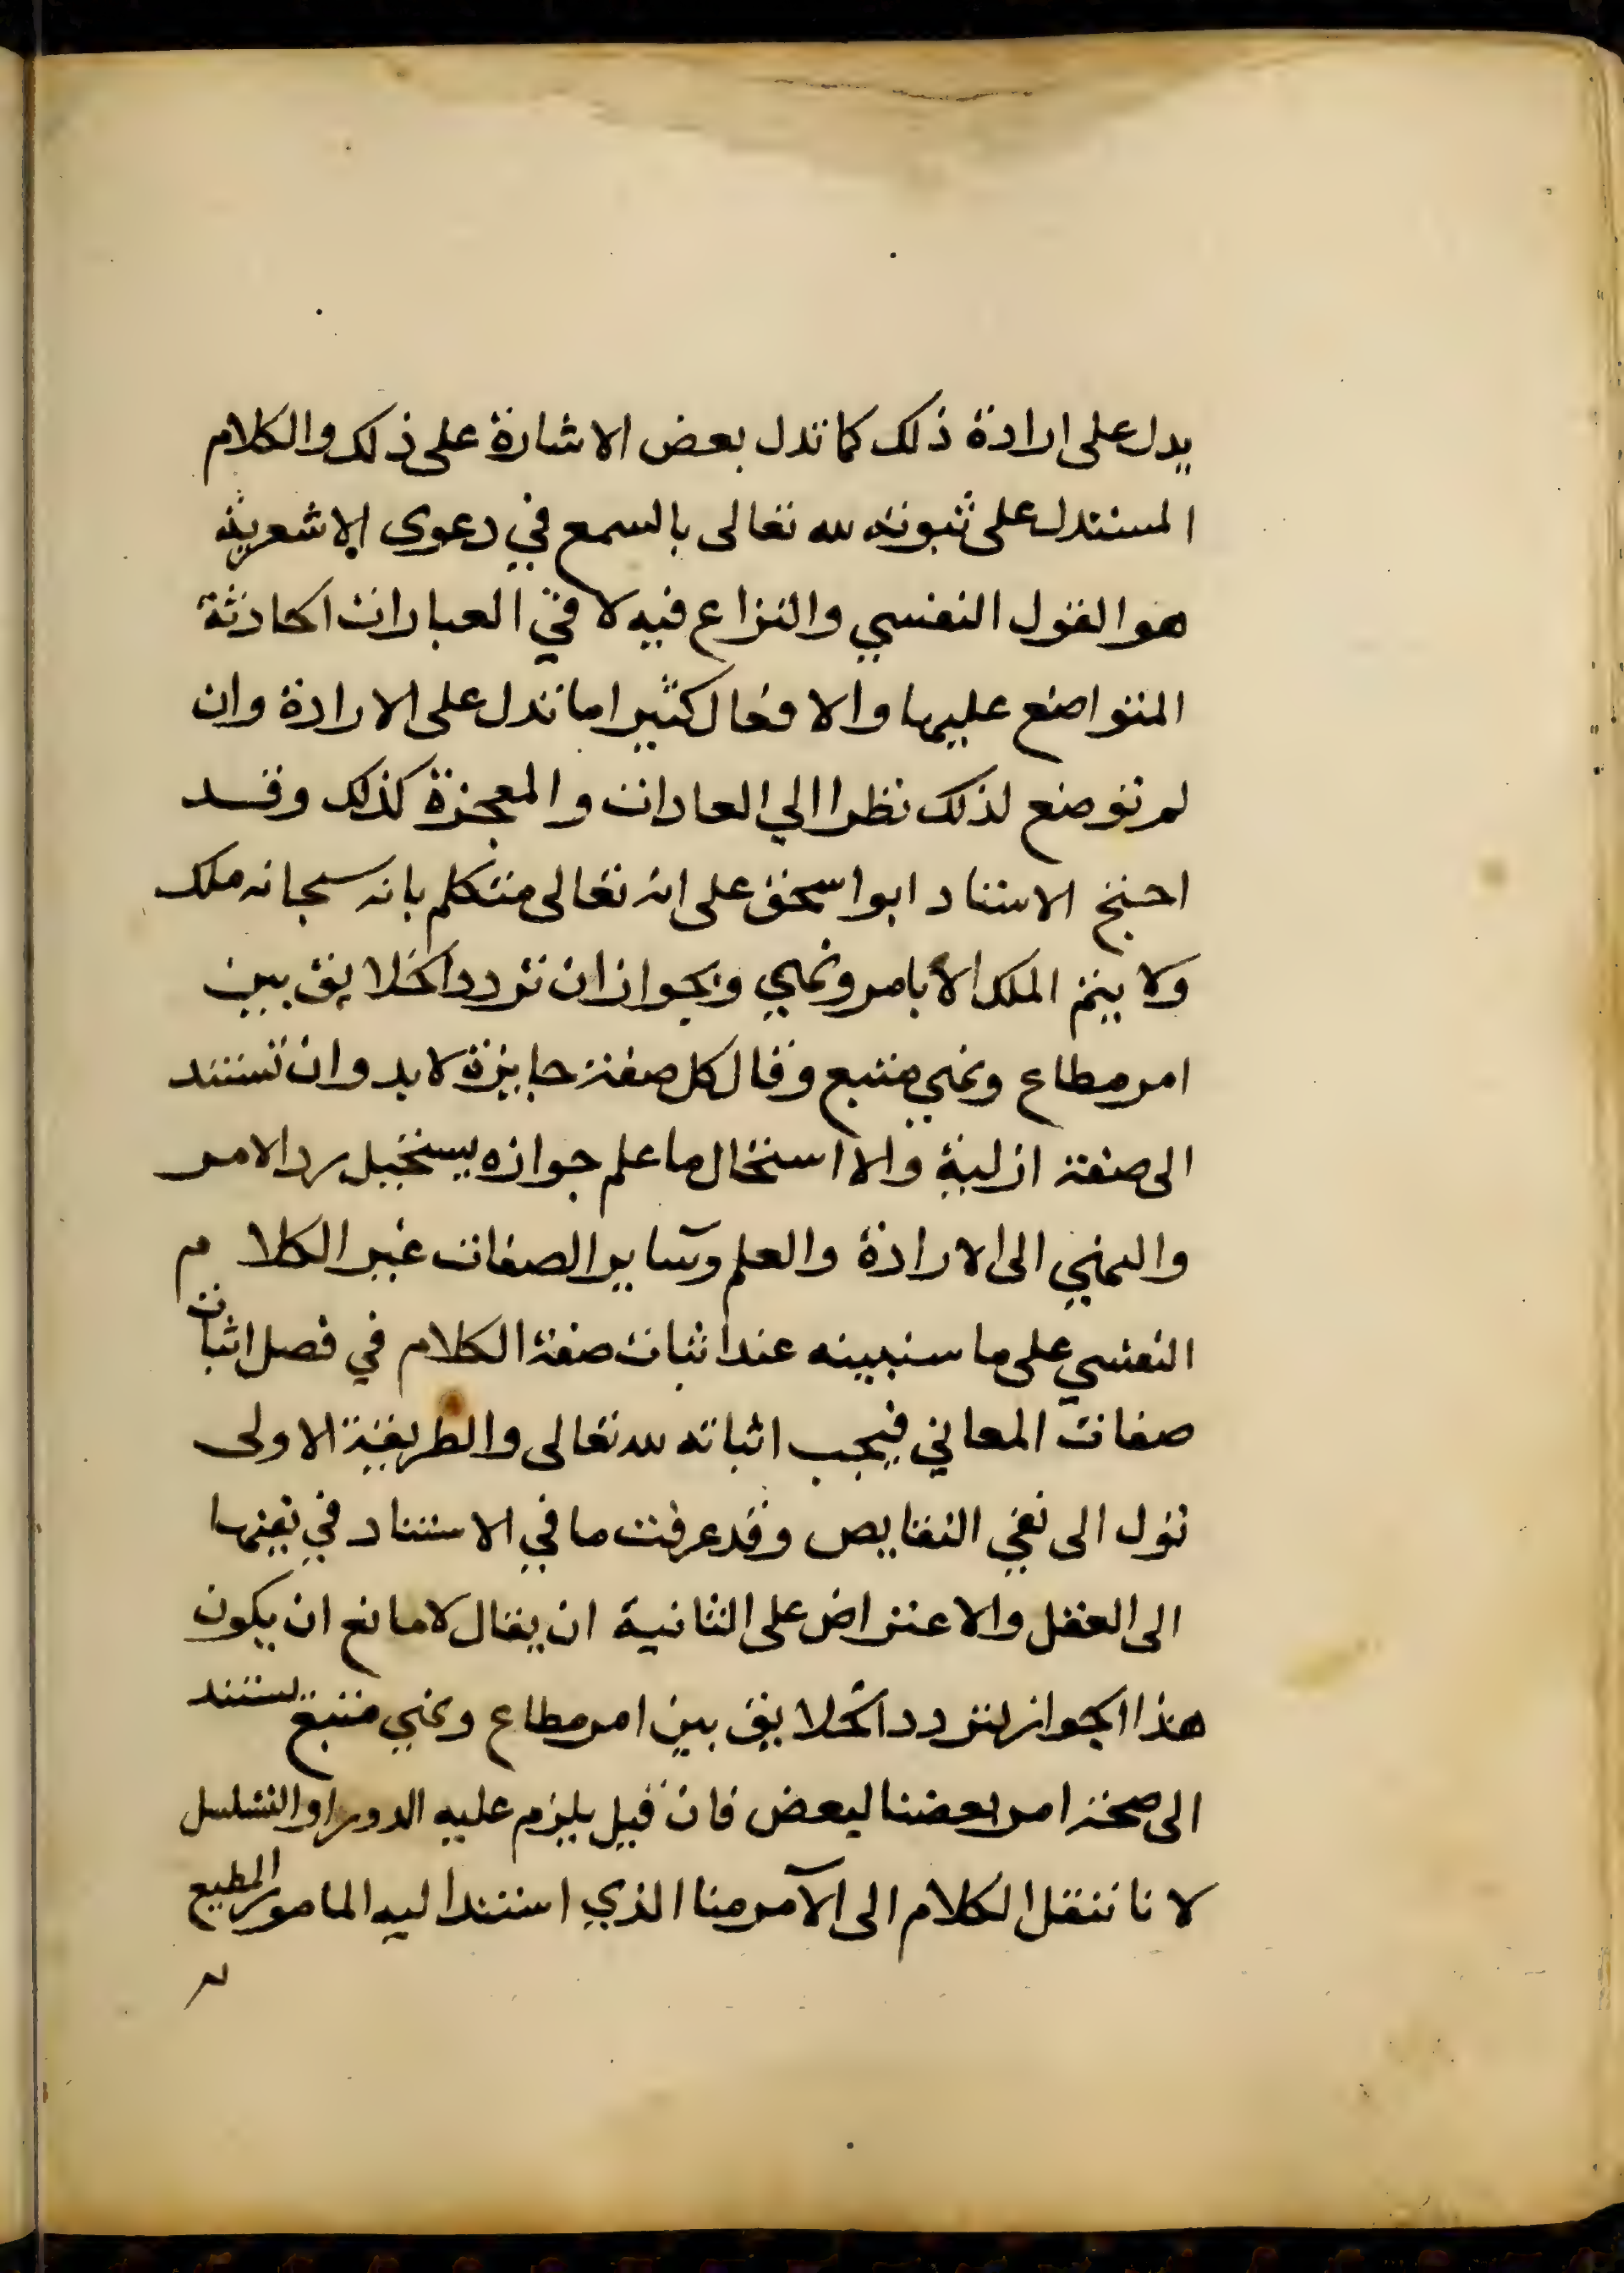 يدل على ارادة ذلك كما تدل بعض الاشارة على ذلك والكلام
المستدل على ثبوته لله تعالى بالسمع في دعوى الاشعرية
هو القول النفسي والنزاع فيه لا في العبارات الحادثة
المتواضع عليها والافعال كثيرا ما تدل على الارادة وان
لم توضع لذلك نظرا الي العادات والمعجزة كذلك وقد
احتج الاستاد ابو اسحق على انه تعالى متكلم بانه سبحانه ملك
ولا يتم الملك الا بامر ونهي وبجواز ان تردد الخلايق بين
امر مطاع ونهي متبع وقال كل صفة جايزة لابد وان تستند
الى صفة ازلية والا استحال ما علم جوازه يستحيل رد الامر
والنهي الى الارادة والعلم وساير الصفات غير الكلام
النفسي على ما سنبينه عند اثبات صفة الكلام في فصل اثبات
صفات المعاني فيجب اثباته لله تعالى والطريقة الاولى
تول الى نفي النقايص وقد عرفت ما في الاستناد في نفيها
الى العقل والاعتراض على الثانية ان يقال لا مانع ان يكون
هذا الجواز لتردد الخلايق بين امر مطاع ونهي متبع يستند
الى صحة امر بعضنا لبعض فان قيل يلزم عليه الدور او التسلسل
لانا ننقل الكلام الى الآمر منا الذي استند اليه المامور المطيع